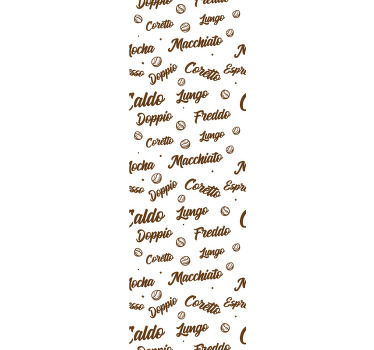 Doppio Freddo
Coretto Lungo
Mocha Macchiato M
Espresso Doppio Coretto Espre
Caldo Lungo C
Doppio Freddo
Coretto Lungo
ocha Macchiato M
sso Doppio Coretto Espre
aldo Lungo C
Doppio Freddo
Coretto Lungo
ocha Macchiato M
sso Doppio Coretto Espre
aldo Lungo C
Doppio Freddo